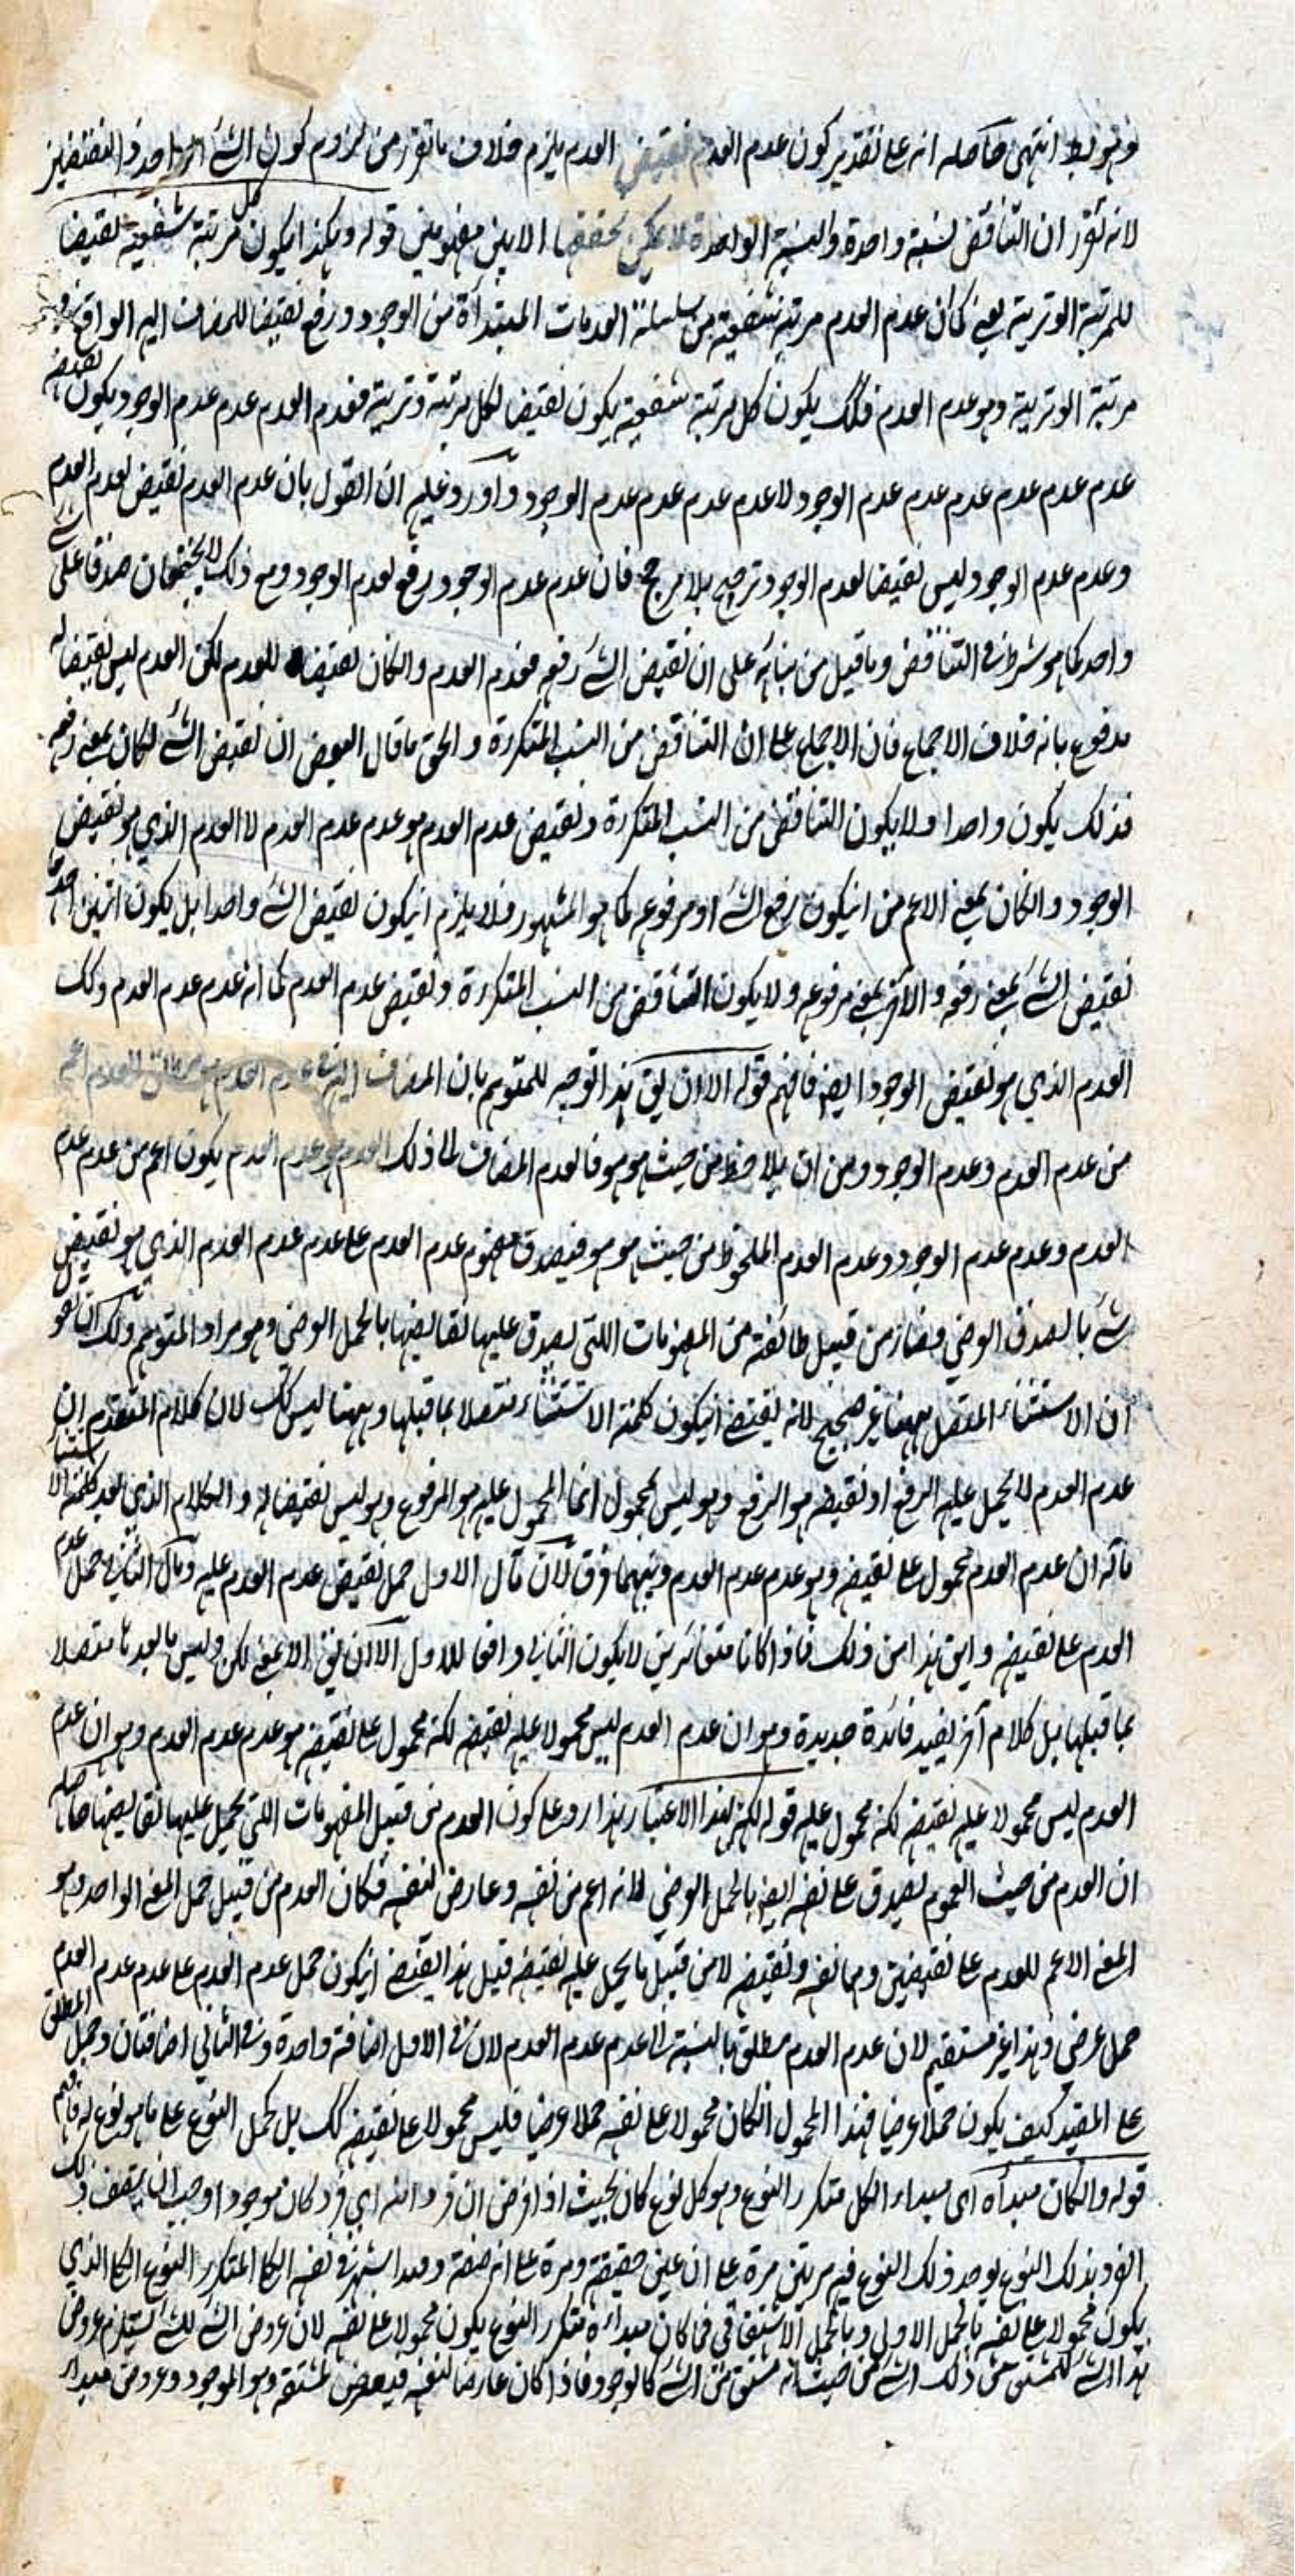 انتهى حاصله انه على تقدير كون عدم العدم نقيض العدم يلزم خلاف ما تقرر من لزوم كون الشئ الواحد النقيضين
لانه تقرر ان التناقض نسبة واحدة والنسبة الواحدة لا يمكن تحققها الا بين مفهومين قوله وهكذا يكون كل مرتبة شفعية نقيضا
للمرتبة الوترية يعنى كما ان عدم العدم مرتبة شفعية من سلسلة العدمات المبتدأة من الوجود ورفع نقيضا للمضاف اليه الواقع فى
مرتبة الوترية وهو عدم العدم فكك يكون كل مرتبة شفعية يكون نقيضا لكل مرتبة وترية فعدم العدم عدم عدم الوجود يكون نقيضه
عدم عدم عدم عدم عدم عدم الوجود لا عدم عدم عدم عدم عدم الوجود واورد عليه ان القول بان عدم العدم نقيض لعدم العدم
وعدم عدم الوجود ليس نقيضا لعدم الوجود ترجيح بلا مرجح فان عدم عدم الوجود رفع لعدم الوجود ومع ذلك لا يجتمعان صدقا على شئ
واحد كما هو شرط فى التناقض وما قيل من بنائه على ان نقيض الشئ رفعه فعدم العدم وان كان نقيضا للعدم لكن العدم ليس نقيضا له
مدفوع بانه خلاف الاجماع فان الاجماع على ان التناقض من النسب المتكررة والحق ما قال البعض ان نقيض الشئ ان كان بمعنى رفعه
فذلك يكون واحدا ولا يكون التناقض من النسب المتكررة ونقيض عدم العدم هو عدم عدم العدم لا العدم الذي هو نقيض
الوجود وان كان بمعنى الاعم من ان يكون رفع الشئ او مرفوعه كما هو المشهور فلا يلزم ان يكون نقيض الشئ واحدا بل يكون اثنين احدهما
نقيض الشئ بمعنى رفعه والآخر بمعنى مرفوعه ولا يكون التناقض من النسب المتكررة ونقيض عدم العدم كما انه عدم عدم العدم وكك
العدم الذي هو نقيض الوجود ايضا فافهم قوله الا ان يق هذا توجيه للمتوهم بان المضاف اليه فى عدم العدم
من عدم العدم وعدم الوجود ومن ان يلاحظ من حيث هو هو فالعدم المضاف ذلك العدم هو عدم العدم يكون اعم من عدم عدم
العدم وعدم عدم الوجود وعدم العدم الملحوظ من حيث هو هو فيصدق مفهوم عدم العدم على عدم عدم العدم الذي هو نقيض
شئ بالصدق العرضي فصار من قبيل طائفة من المفهومات اللتى يصدق عليها نقائضها بالحمل العرضى وهو مراد المتوهم ولك ان تقول
ان الاستثناء المتصل ههنا غير صحيح لانه يقتضى ان يكون كلمة الاستثناء متصلا بما قبلها وههنا ليس كك لان كلام المتقدم ان
عدم العدم لا يحمل عليه الرفع او نقيضه هو الرفع وهو ليس بمحمول انما المحمول عليه هو المرفوع وهو ليس نقيضا له والكلام الذى بعد كلمة الاستثناء
مآله ان عدم العدم محمول على نقيضه وهو عدم عدم العدم وبينهما فرق لان مآل الاول حمل نقيض عدم العدم عليه ومآل الثانى حمل عدم
العدم على نقيضه واين هذا من ذلك فاذا كانا متغائرين لا يكون الثانى واقعا للاول الا ان يق الا بمعنى لكن وليس ما بعدها متصلا
بما قبلها بل كلام آخر يفيد فائدة جديدة وهو ان عدم العدم ليس محمولا عليه نقيضه لكنه محمول على نقيضه هو عدم عدم العدم وهو ان عدم
العدم ليس محمولا عليه نقيضه لكنه محمول عليه قوله لكن بهذا الاعتبار هذا رد على كون العدم من قبيل المفهومات اللتى يحمل عليها نقائضها حاصله
ان العدم من حيث العموم يصدق على نفسه ايضا بالحمل العرضي لانه اعم من نفسه وعارض لنفسه فكان العدم من قبيل حمل المعنى الواحد وهو
المعنى الاعم للعدم على نقيضين وهما نفسه ونقيضه لا من قبيل ما يحمل عليه نقيضه قيل هذا يقتضى ان يكون حمل عدم العدم على عدم عدم العدم
حمل عرضي وهذا غير مستقيم لان عدم العدم مطلق بالنسبة الى عدم عدم العدم لان فى الاول اضافة واحدة وفى الثانى اضافتان وحمل المطلق
على المقيد كيف يكون حملا عرضيا فهذا المحمول ان كان محمولا على نفسه حملا عرضيا فليس محمولا على نقيضه كك بل كحمل النوع على ما هو نوع له فافهم
قوله وان كان مبدأه اى مبداء الكل متكرر النوع وهو كل نوع كان بحيث اذا فرض ان فردا منه اي فرد كان موجودا وجب ان يتصف ذلك
الفرد بذلك النوع يوجد ذلك النوع فيه مرتين مرة على ان عين حقيقته ومرة على انه صفته وفيما اشتهر فى نفسه الكلى المتكرر النوع الكلى الذي
يكون محمولا على نفسه بالحمل الاولى وبالحمل الاشتقاقى فما كان مبداءه متكرر النوع يكون محمولا على نفسه لان عروض الشئ للشئ يستلزم عروض
هذا الشئ للمشتق من ذلك الشئ من حيث انه مشتق من الشئ كالوجود فاذا كان عارضا لنفسه فيعرض لمشتقه وهو الموجود وعروض مبداء